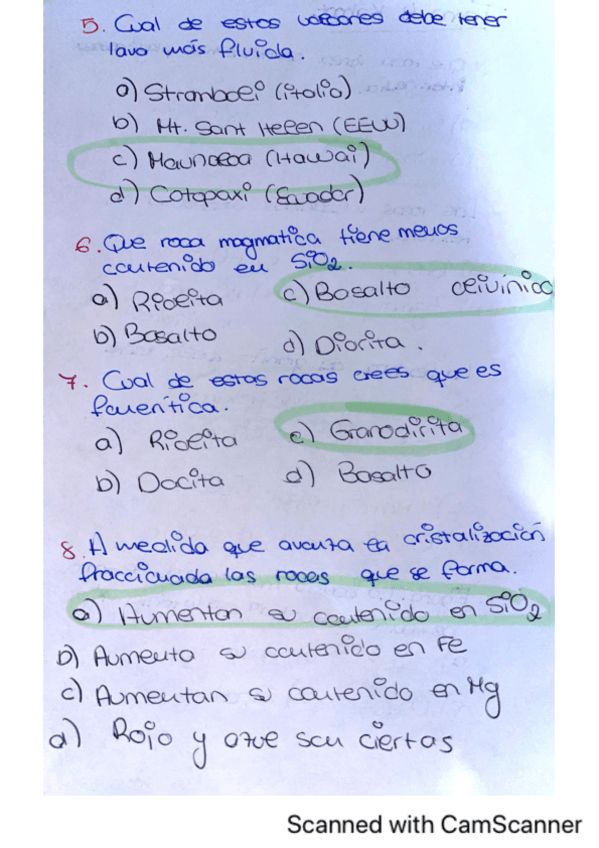 5. Cual de estos volcanes debe tener
lava más fluida.
a) Stramboli (italia)
b) Mt. Sant Hellen (EEUU)
c) Maunaloa (Hawai)
d) Cotopaxi (Ecuador)
6. Que roca magmatica tiene menos
contenido en SiO2.
a) Riolita
c) Basalto olivinico
b) Basalto
d) Diorita.
7. Cual de estas rocas crees que es
faneritica.
a) Riolita
c) Granodirita
b) Dacita
d) Basalto
8. A medida que avanza la cristalización
fraccionada las rocas que se forma.
a) Aumentan su contenido en SiO2
b) Aumenta su contenido en Fe
c) Aumentan su contenido en Mg
d) Rojo y azul son ciertas
Scanned with CamScanner